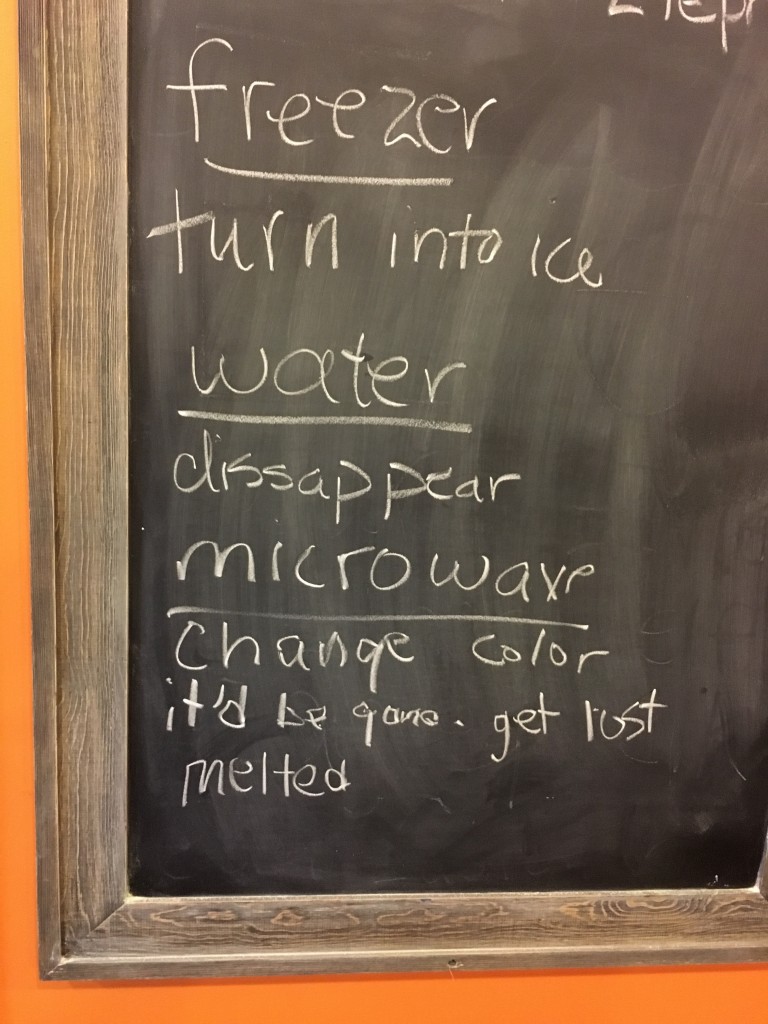 freezer
turn into ice
water
dissappear
microwave
change color
it'd be gone. get lost
melted